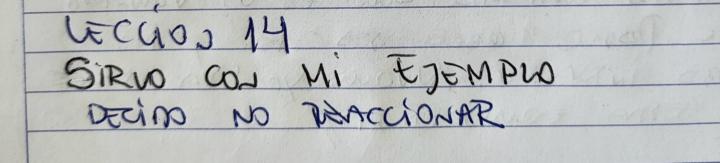 LECCION 14
SIRVO CON MI EJEMPLO
DECIDO NO REACCIONAR